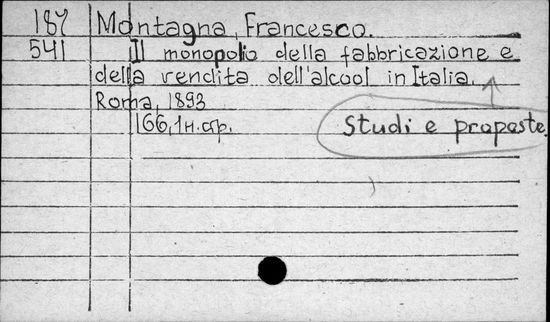 187 Montagna, Francesco.
541 Il monopolio della fabbricazione e
della vendita dell'alcool in Italia.
Roma, 1893
Studi e proposte.
166, 1н. стр.